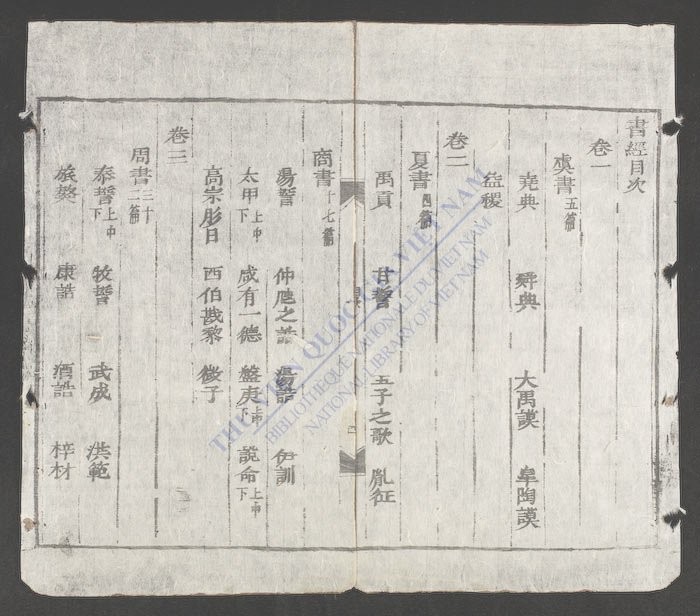 書經目次
卷一
虞書五篇
堯典 舜典 大禹謨 皐陶謨
益稷
卷二
夏書四篇
禹貢 甘誓 五子之歌 胤征
商書十七篇
湯誓 仲虺之誥 湯誥 伊訓
太甲上中下 咸有一德 盤庚上中下 說命上中下
高宗肜日 西伯戡黎 微子
卷三
周書三十二篇
泰誓上中下 牧誓 武成 洪範
旅獒 康誥 酒誥 梓材
THƯ VIỆN QUỐC GIA VIỆT NAM
BIBLIOTHÈQUE NATIONALE DU VIETNAM
NATIONAL LIBRARY OF VIETNAM